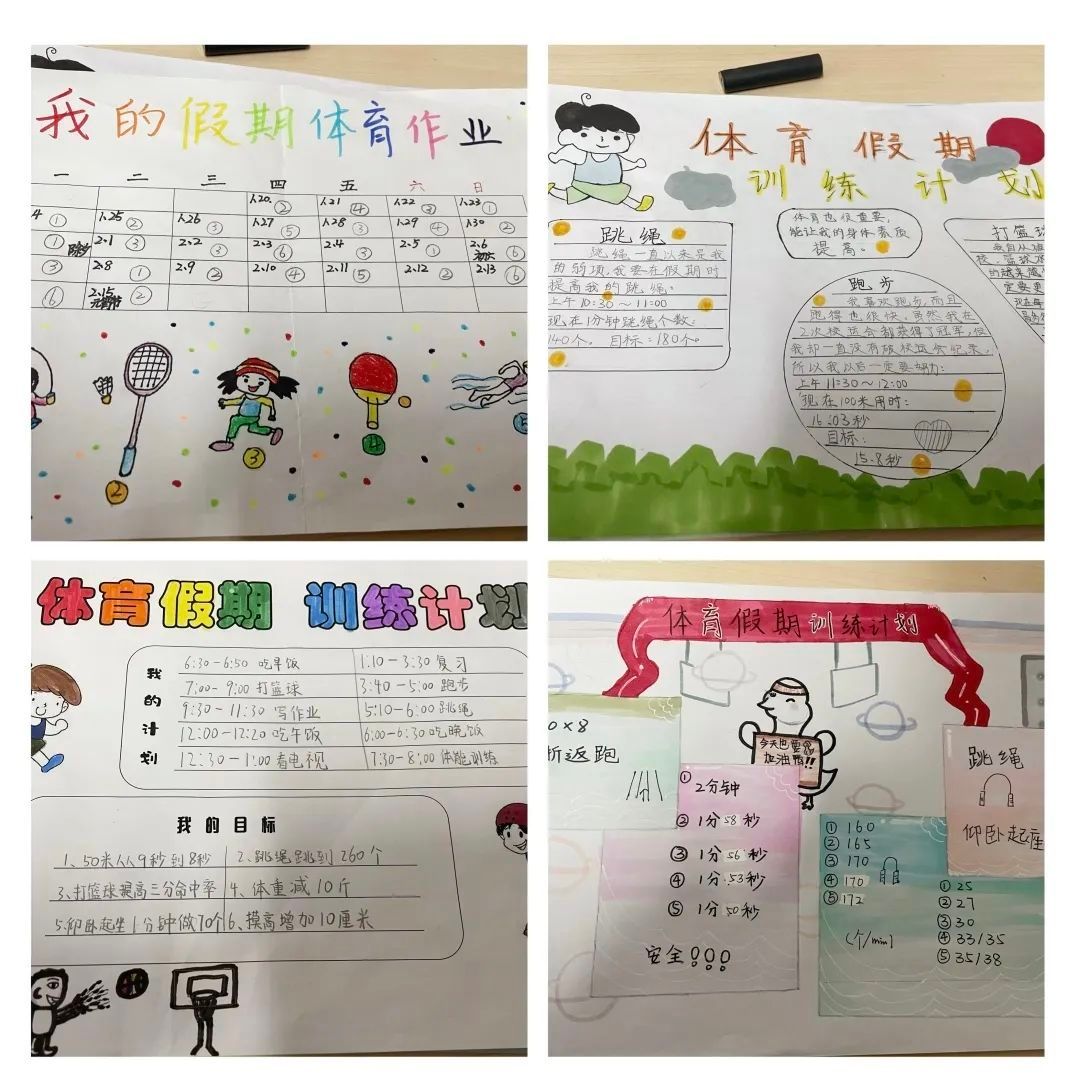 我的假期体育作业
一 二 三 四 五 六 日
1.20 ② 1.21 ④ 1.22 ③ 1.23 ①
4 ① 1.25 ② 1.26 ③ 1.27 ⑤ 1.28 ③ 1.29 ④ 1.30 ②
① 2.1 ③ 2.2 ③ 2.3 ⑥ 2.4 ③ 2.5 ① 2.6 ⑥
③ 2.8 ① 2.9 ② 2.10 ④ 2.11 ⑤ 2.12 ② 2.13 ⑥
⑥ 2.15 元宵节 ②
②
③
④
⑤
体育假期
训练计划
跳绳
跳绳一直以来是我
的弱项,我要在假期时
提高我的跳绳。
上午10:30~11:00
现在1分钟跳绳个数:
140个。 目标:180个。
体育也很重要,
能让我的身体素质
提高。
跑步
我喜欢跑步,而且
跑得也很快。虽然我在
2次校运会都获得了冠军,但
我却一直没有破校运会记录,
所以我以后一定要努力!
上午11:30~12:00
现在100米用时:
16:03秒
目标:
15.8秒
打篮
我自从
校,篮球
的越来
定要更
现在每
体育假期 训练计划
我的计划
6:30-6:50 吃早饭
7:00-9:00 打篮球
9:30-11:30 写作业
12:00-12:20 吃午饭
12:30-1:00 看电视
1:10-3:30 复习
3:40-5:00 跑步
5:10-6:00 跳绳
6:00-6:30 吃晚饭
7:30-8:00 体能训练
我的目标
1、50米从9秒到8秒 2、跳绳跳到260个
3、打篮球提高三分命中率 4、体重减10斤
5、仰卧起坐1分钟做70个 6、摸高增加10厘米
体育假期训练计划
0×8
折返跑
今天也要
加油鸭!!
① 2分钟
② 1分58秒
③ 1分56秒
④ 1分53秒
⑤ 1分50秒
安全!!!
跳绳
仰卧起座
① 160
② 165
③ 170
④ 170
⑤ 172
(个/min)
① 25
② 27
③ 30
④ 33/35
⑤ 35/38